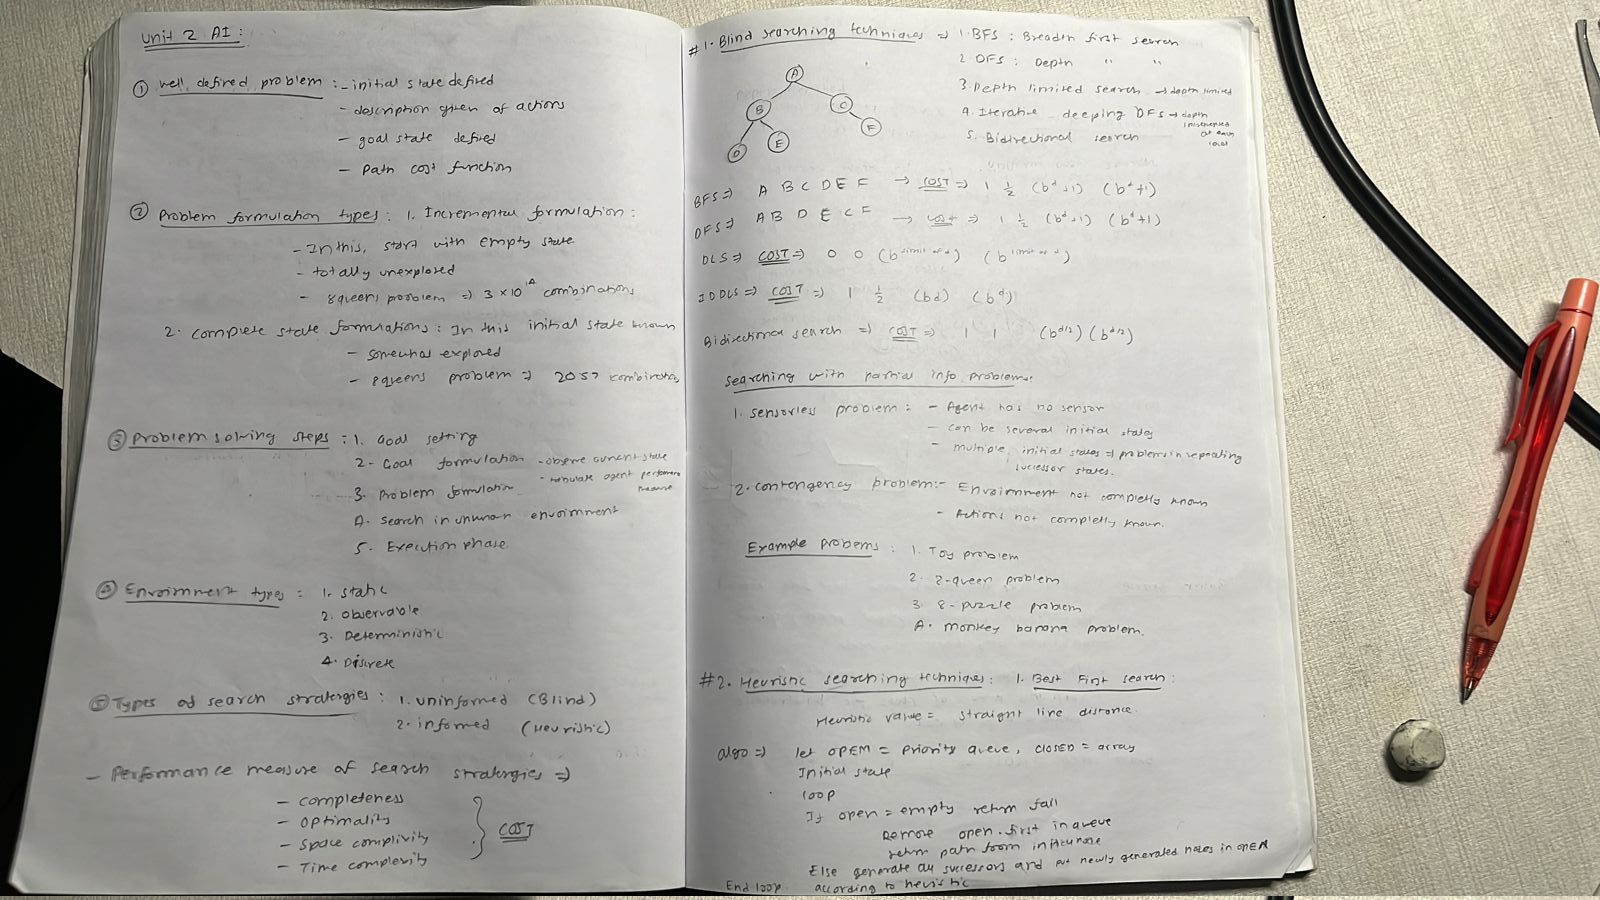 Unit 2 AI :
① well defined problem : - initial state defined
- description given of actions
- goal state defined
- Path cost function
② Problem formulation types : 1. Incremental formulation :
- In this, start with empty state
- totally unexplored
- 8queens problem => 3 × 10^14 combinations
2. complete state formulations : In this initial state known
- somewhat explored
- 8queens problem => 2057 combinations
③ Problem solving steps : 1. Goal setting
2. Goal formulation - observe current state
- tabulate agent performance measure
3. Problem formulation
4. Search in unknown envoirnment
5. Execution phase
④ Envoirnment types : 1. static
2. observable
3. Deterministic
4. Discrete
⑤ Types of search stratergies : 1. uninformed (Blind)
2. informed (Heuristic)
- Performance measure of search stratergies =>
- completeness
- optimality
- Space complivity
- Time complexity
COST
#1. Blind searching techniques => 1. BFS : Breadth first search
2. DFS : Depth " "
3. Depth limited search → depth limited
4. Iterative deeping DFS → depth incremented at each level
5. Bidirectional search
A
B C
D E F
BFS => A B C D E F → COST => 1 1/2 (b^d+1) (b^d+1)
DFS => A B D E C F → cost => 1 1/2 (b^d+1) (b^d+1)
DLS => COST => 0 0 (b^limit of d) (b^limit of d)
IDDLS => COST => 1 1/2 (bd) (b^d)
Bidirectional search => COST => 1 1 (b^d/2) (b^d/2)
Searching with partial info problems:
1. sensorless problem : - Agent has no sensor
- can be several initial states
- multiple initial states => problems in repeating
successor states.
2. contengency problem:- Envoirnment not completly known
- Actions not completly known.
Example probems : 1. Toy problem
2. 8-queen problem
3. 8-puzzle problem
4. monkey banana problem.
#2. Heuristic searching techniques : 1. Best First search :
Heuristic value = straight line distance.
algo => let OPEN = Priority queue, CLOSED = array
Initial state
loop
If open = empty return fail
Remove open.first in queue
return path from initial node
Else generate all successors and put newly generated nodes in OPEN
according to heuristic
End loop